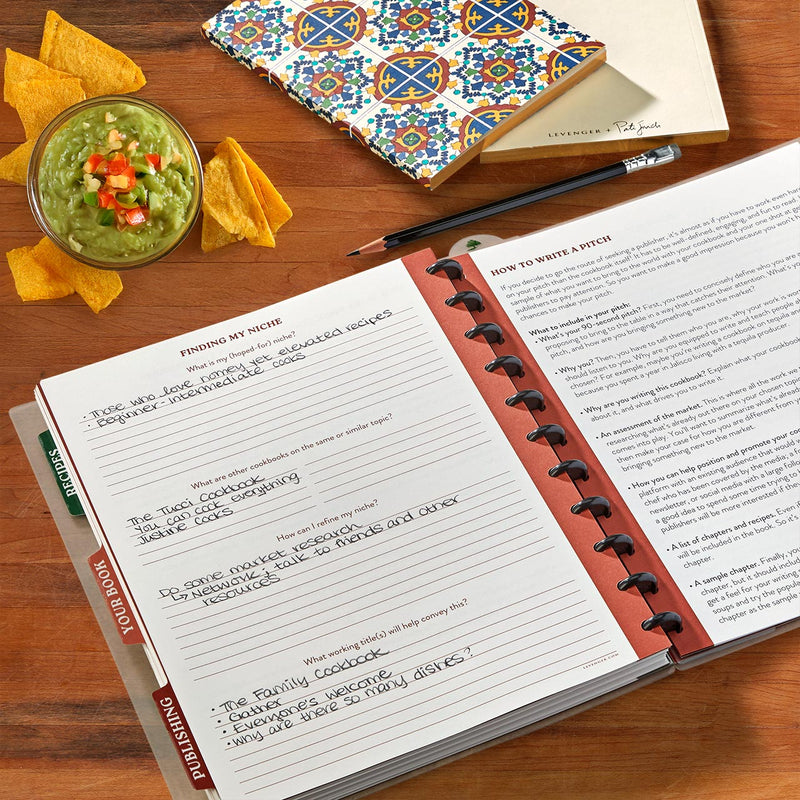 LEVENGER + Pati Jinich
FINDING MY NICHE
What is my (hoped-for) niche?
· Those who love homey yet elevated recipes
· Beginner-intermediate cooks
What are other cookbooks on the same or similar topic?
The Tucci Cookbook
You can cook everything
Justine Cooks
How can I refine my niche?
Do some market research
↳ Network; talk to friends and other
resources
What working title(s) will help convey this?
· The Family Cookbook
· Gather
· Everyone's Welcome
· Why are there so many dishes?
LEVENGER.COM
RECIPES
YOUR BOOK
PUBLISHING
HOW TO WRITE A PITCH
If you decide to go the route of seeking a publisher, it's almost as if you have to work even
on your pitch than the cookbook itself! It has to be well-defined, engaging, and fun to read.
sample of what you want to bring to the world with your cookbook and your one shot at
publishers to pay attention. So you want to make a good impression because you won't
chances to make your pitch.
What to include in your pitch:
• What's your 90-second pitch? First, you need to concisely define who you are
proposing to bring to the table in a way that catches their attention. What's
pitch, and how are you bringing something new to the market?
• Why you? Then, you have to tell them who you are, why your work is
should listen to you. Why are you equipped to write and teach people
chosen? For example, maybe you're writing a cookbook on tequila and
because you spent a year in Jalisco living with a tequila producer
• Why are you writing this cookbook? Explain what your cookbook
about it, and what drives you to write it.
• An assessment of the market. This is where all the work
researching what's already out there on your chosen
comes into play. You'll want to summarize what's
then make your case for how you are different from
bringing something new to the market.
• How you can help position and promote your
platform with an existing audience that would
chef who has been covered by the media, a
newsletter, or social media with a large
a good idea to spend some time trying to
publishers will be more interested if the
• A list of chapters and recipes. Even
will be included in the book. So it's
chapter.
• A sample chapter. Finally, you
chapter, but it should include
get a feel for your writing
soups and try the popular
chapter as the sample